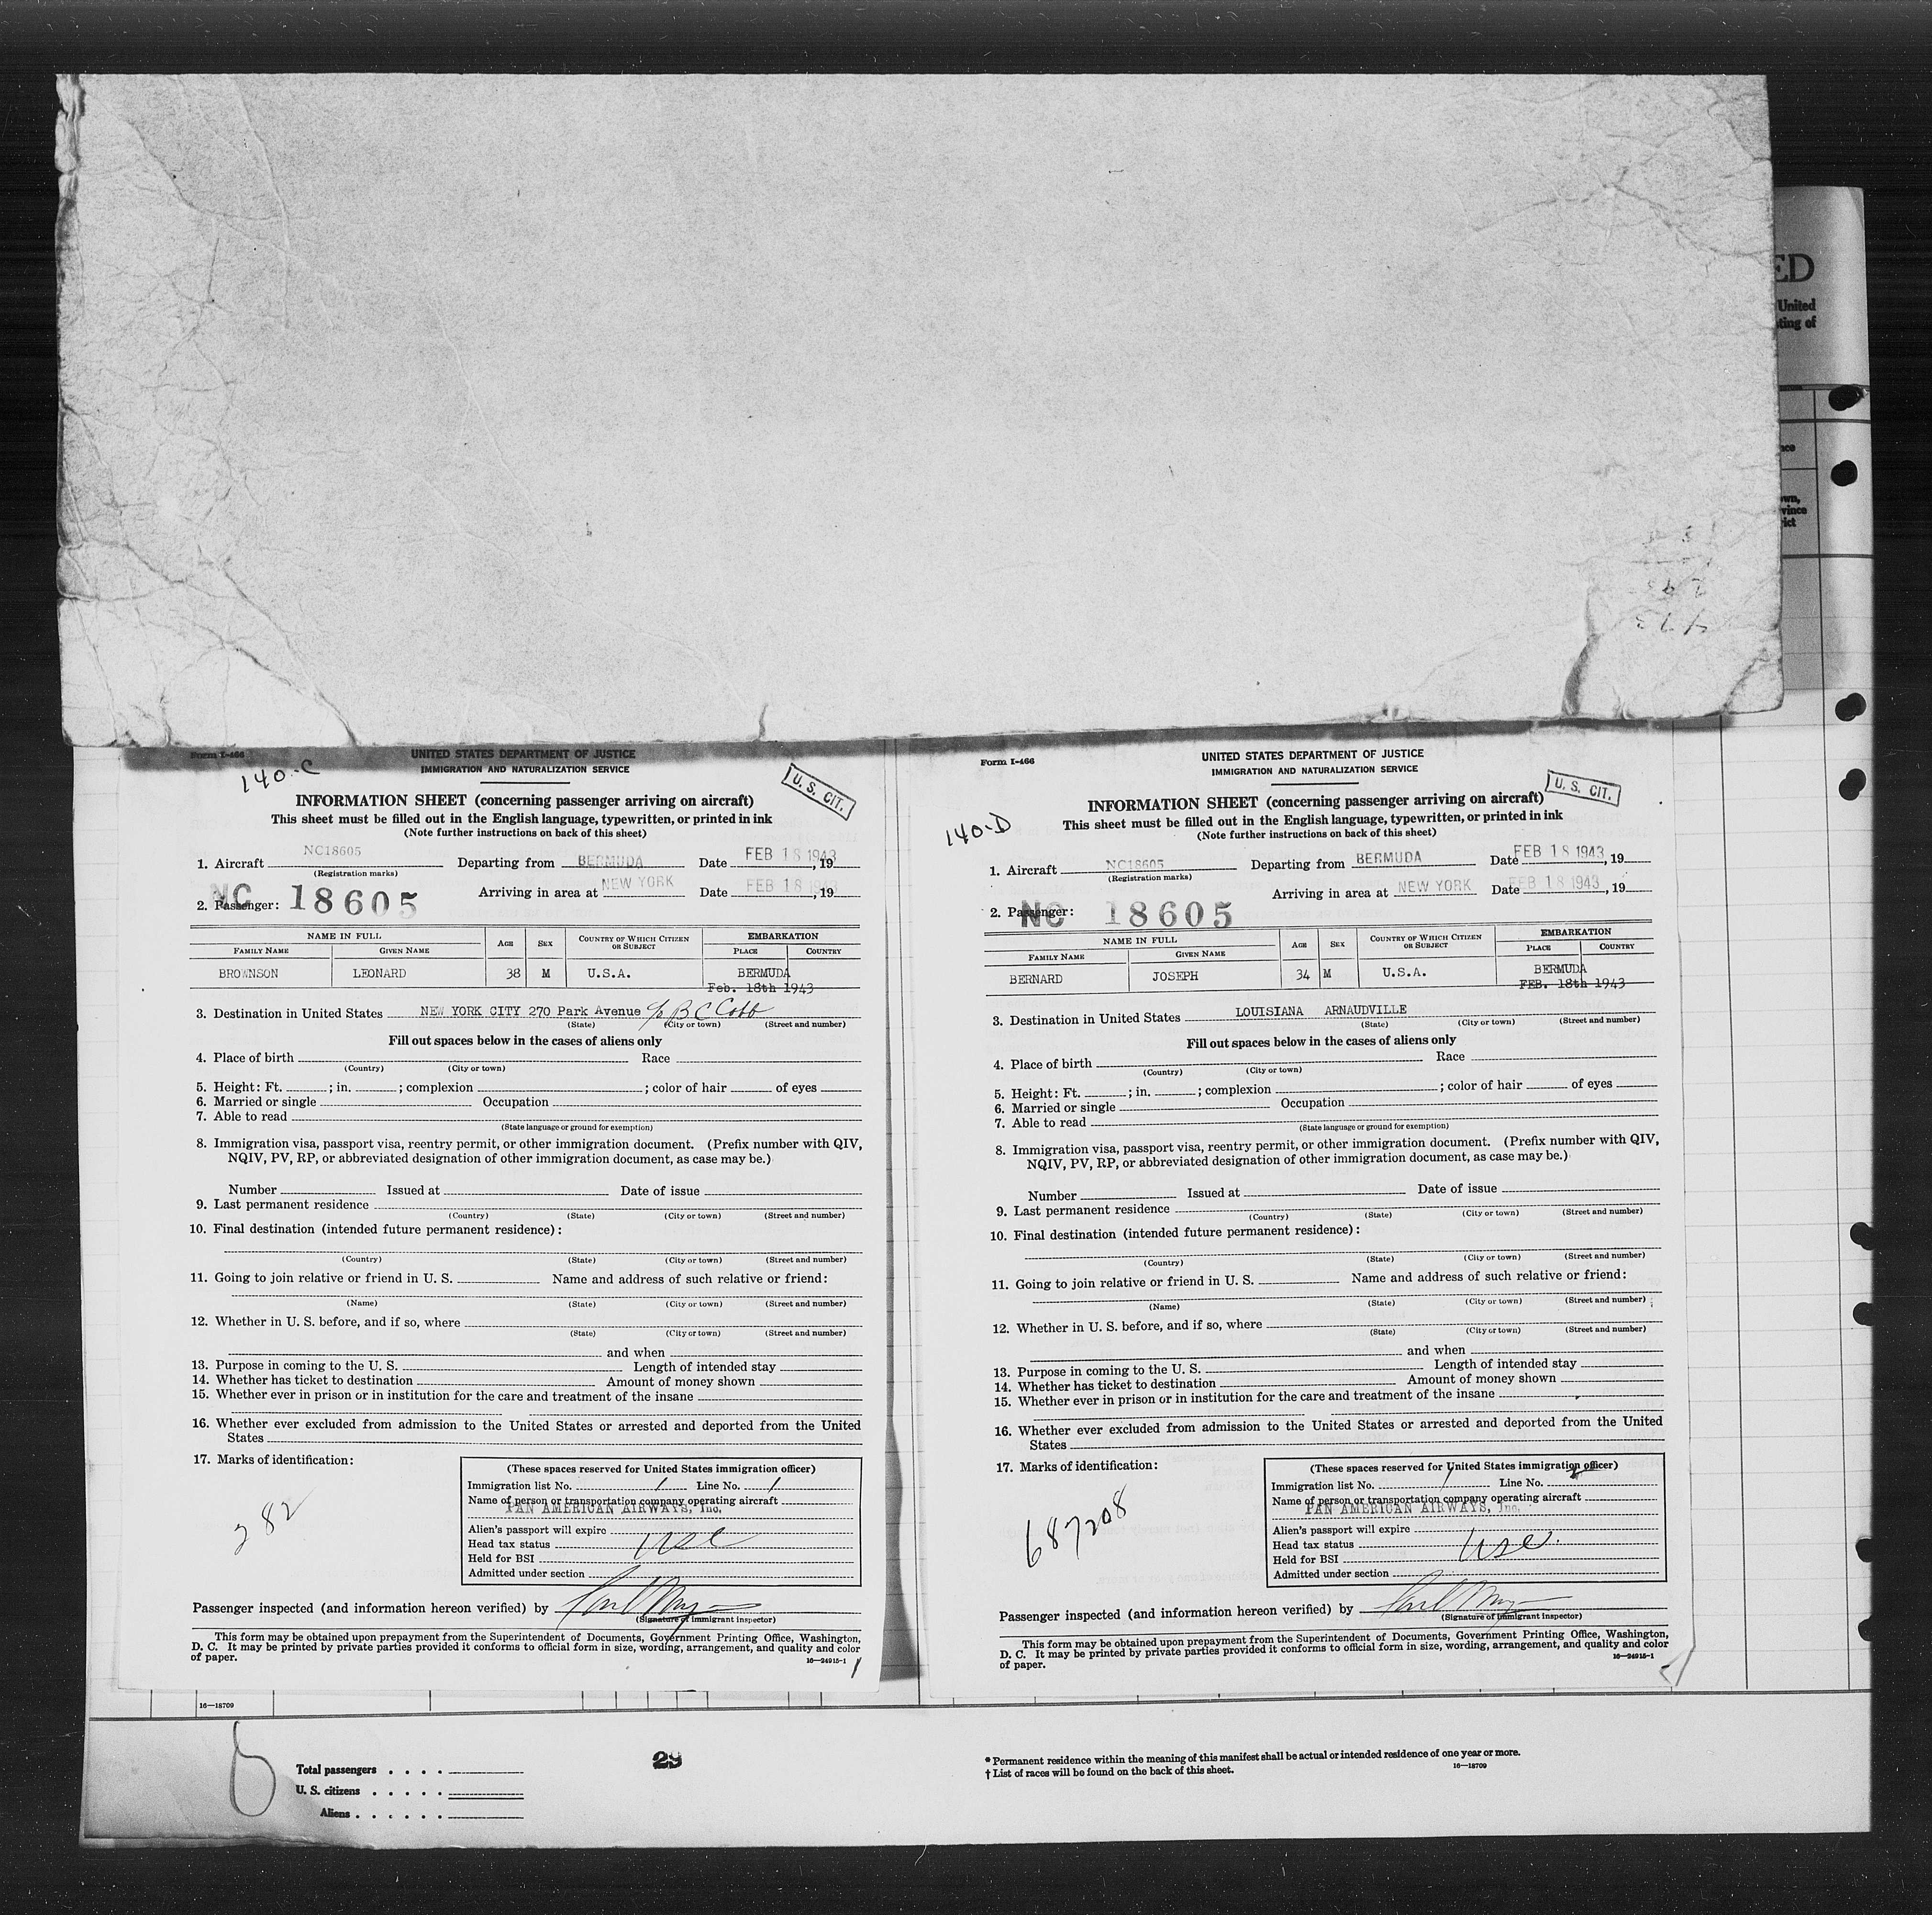 ED
United
ting of
nce
wn,
vince
rict
Form I-466
140-C
UNITED STATES DEPARTMENT OF JUSTICE
IMMIGRATION AND NATURALIZATION SERVICE
U. S. CIT.
INFORMATION SHEET (concerning passenger arriving on aircraft)
This sheet must be filled out in the English language, typewritten, or printed in ink
(Note further instructions on back of this sheet)
1. Aircraft NC18605 Departing from BERMUDA Date FEB 18 1943, 19
(Registration marks)
Arriving in area at NEW YORK Date FEB 18 1943, 19
2. Passenger: NC 18605
NAME IN FULL AGE SEX COUNTRY OF WHICH CITIZEN OR SUBJECT EMBARKATION
FAMILY NAME GIVEN NAME PLACE COUNTRY
BROWNSON LEONARD 38 M U.S.A. BERMUDA
Feb. 18th 1943
3. Destination in United States NEW YORK CITY 270 Park Avenue c/o B C Cobb
(State) (City or town) (Street and number)
Fill out spaces below in the cases of aliens only
4. Place of birth Race
(Country) (City or town)
5. Height: Ft. ; in. ; complexion ; color of hair of eyes
6. Married or single Occupation
7. Able to read
(State language or ground for exemption)
8. Immigration visa, passport visa, reentry permit, or other immigration document. (Prefix number with QIV,
NQIV, PV, RP, or abbreviated designation of other immigration document, as case may be.)
Number Issued at Date of issue
9. Last permanent residence
(Country) (State) (City or town) (Street and number)
10. Final destination (intended future permanent residence):
(Country) (State) (City or town) (Street and number)
11. Going to join relative or friend in U. S. Name and address of such relative or friend:
(Name) (State) (City or town) (Street and number)
12. Whether in U. S. before, and if so, where
(State) (City or town) (Street and number)
and when
13. Purpose in coming to the U. S. Length of intended stay
14. Whether has ticket to destination Amount of money shown
15. Whether ever in prison or in institution for the care and treatment of the insane
16. Whether ever excluded from admission to the United States or arrested and deported from the United
States
17. Marks of identification:
(These spaces reserved for United States immigration officer)
Immigration list No. 1 Line No. 1
Name of person or transportation company operating aircraft
PAN AMERICAN AIRWAYS, Inc.
Alien's passport will expire
Head tax status usc
Held for BSI
Admitted under section
282
Passenger inspected (and information hereon verified) by
(Signature of immigrant inspector)
This form may be obtained upon prepayment from the Superintendent of Documents, Government Printing Office, Washington,
D. C. It may be printed by private parties provided it conforms to official form in size, wording, arrangement, and quality and color
of paper. 16—24915-1
Form I-466
UNITED STATES DEPARTMENT OF JUSTICE
IMMIGRATION AND NATURALIZATION SERVICE
U. S. CIT.
140-D
INFORMATION SHEET (concerning passenger arriving on aircraft)
This sheet must be filled out in the English language, typewritten, or printed in ink
(Note further instructions on back of this sheet)
1. Aircraft NC18605 Departing from BERMUDA Date FEB 18 1943, 19
(Registration marks)
Arriving in area at NEW YORK Date FEB 18 1943, 19
2. Passenger: NC 18605
NAME IN FULL AGE SEX COUNTRY OF WHICH CITIZEN OR SUBJECT EMBARKATION
FAMILY NAME GIVEN NAME PLACE COUNTRY
BERNARD JOSEPH 34 M U.S.A. BERMUDA
FEB. 18th 1943
3. Destination in United States LOUISIANA ARNAUDVILLE
(State) (City or town) (Street and number)
Fill out spaces below in the cases of aliens only
4. Place of birth Race
(Country) (City or town)
5. Height: Ft. ; in. ; complexion ; color of hair of eyes
6. Married or single Occupation
7. Able to read
(State language or ground for exemption)
8. Immigration visa, passport visa, reentry permit, or other immigration document. (Prefix number with QIV,
NQIV, PV, RP, or abbreviated designation of other immigration document, as case may be.)
Number Issued at Date of issue
9. Last permanent residence
(Country) (State) (City or town) (Street and number)
10. Final destination (intended future permanent residence):
(Country) (State) (City or town) (Street and number)
11. Going to join relative or friend in U. S. Name and address of such relative or friend:
(Name) (State) (City or town) (Street and number)
12. Whether in U. S. before, and if so, where
(State) (City or town) (Street and number)
and when
13. Purpose in coming to the U. S. Length of intended stay
14. Whether has ticket to destination Amount of money shown
15. Whether ever in prison or in institution for the care and treatment of the insane
16. Whether ever excluded from admission to the United States or arrested and deported from the United
States
17. Marks of identification:
(These spaces reserved for United States immigration officer)
Immigration list No. 1 Line No. 2
Name of person or transportation company operating aircraft
PAN AMERICAN AIRWAYS, Inc.
Alien's passport will expire
Head tax status usc.
Held for BSI
Admitted under section
687208
Passenger inspected (and information hereon verified) by
(Signature of immigrant inspector)
This form may be obtained upon prepayment from the Superintendent of Documents, Government Printing Office, Washington,
D. C. It may be printed by private parties provided it conforms to official form in size, wording, arrangement, and quality and color
of paper. 16—24915-1
16—18709
Total passengers . . . .
U. S. citizens . . . . .
Aliens . . . . . .
29
* Permanent residence within the meaning of this manifest shall be actual or intended residence of one year or more.
† List of races will be found on the back of this sheet. 16—18709